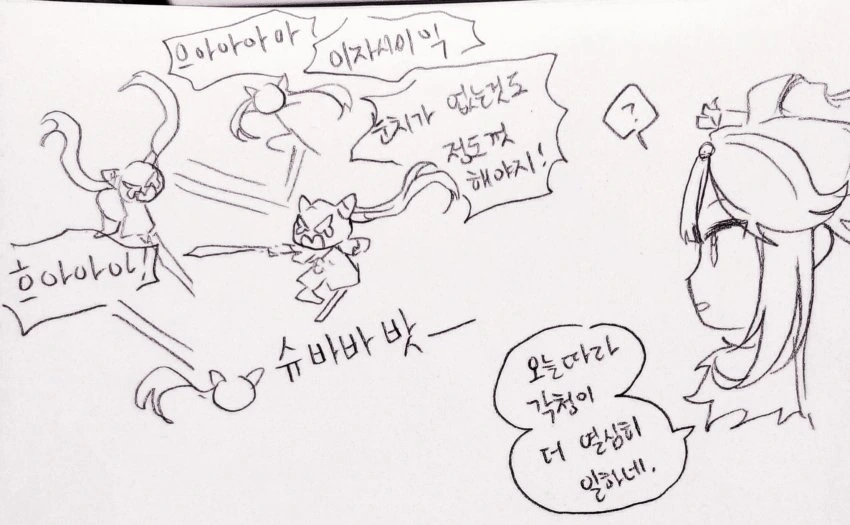 으아아아아
이자시이익
눈치가 없는것도
정도껏
해야지!
?
흐아아아!
슈바바밧ㅡ
오늘따라
각청이
더 열심히
일하네.